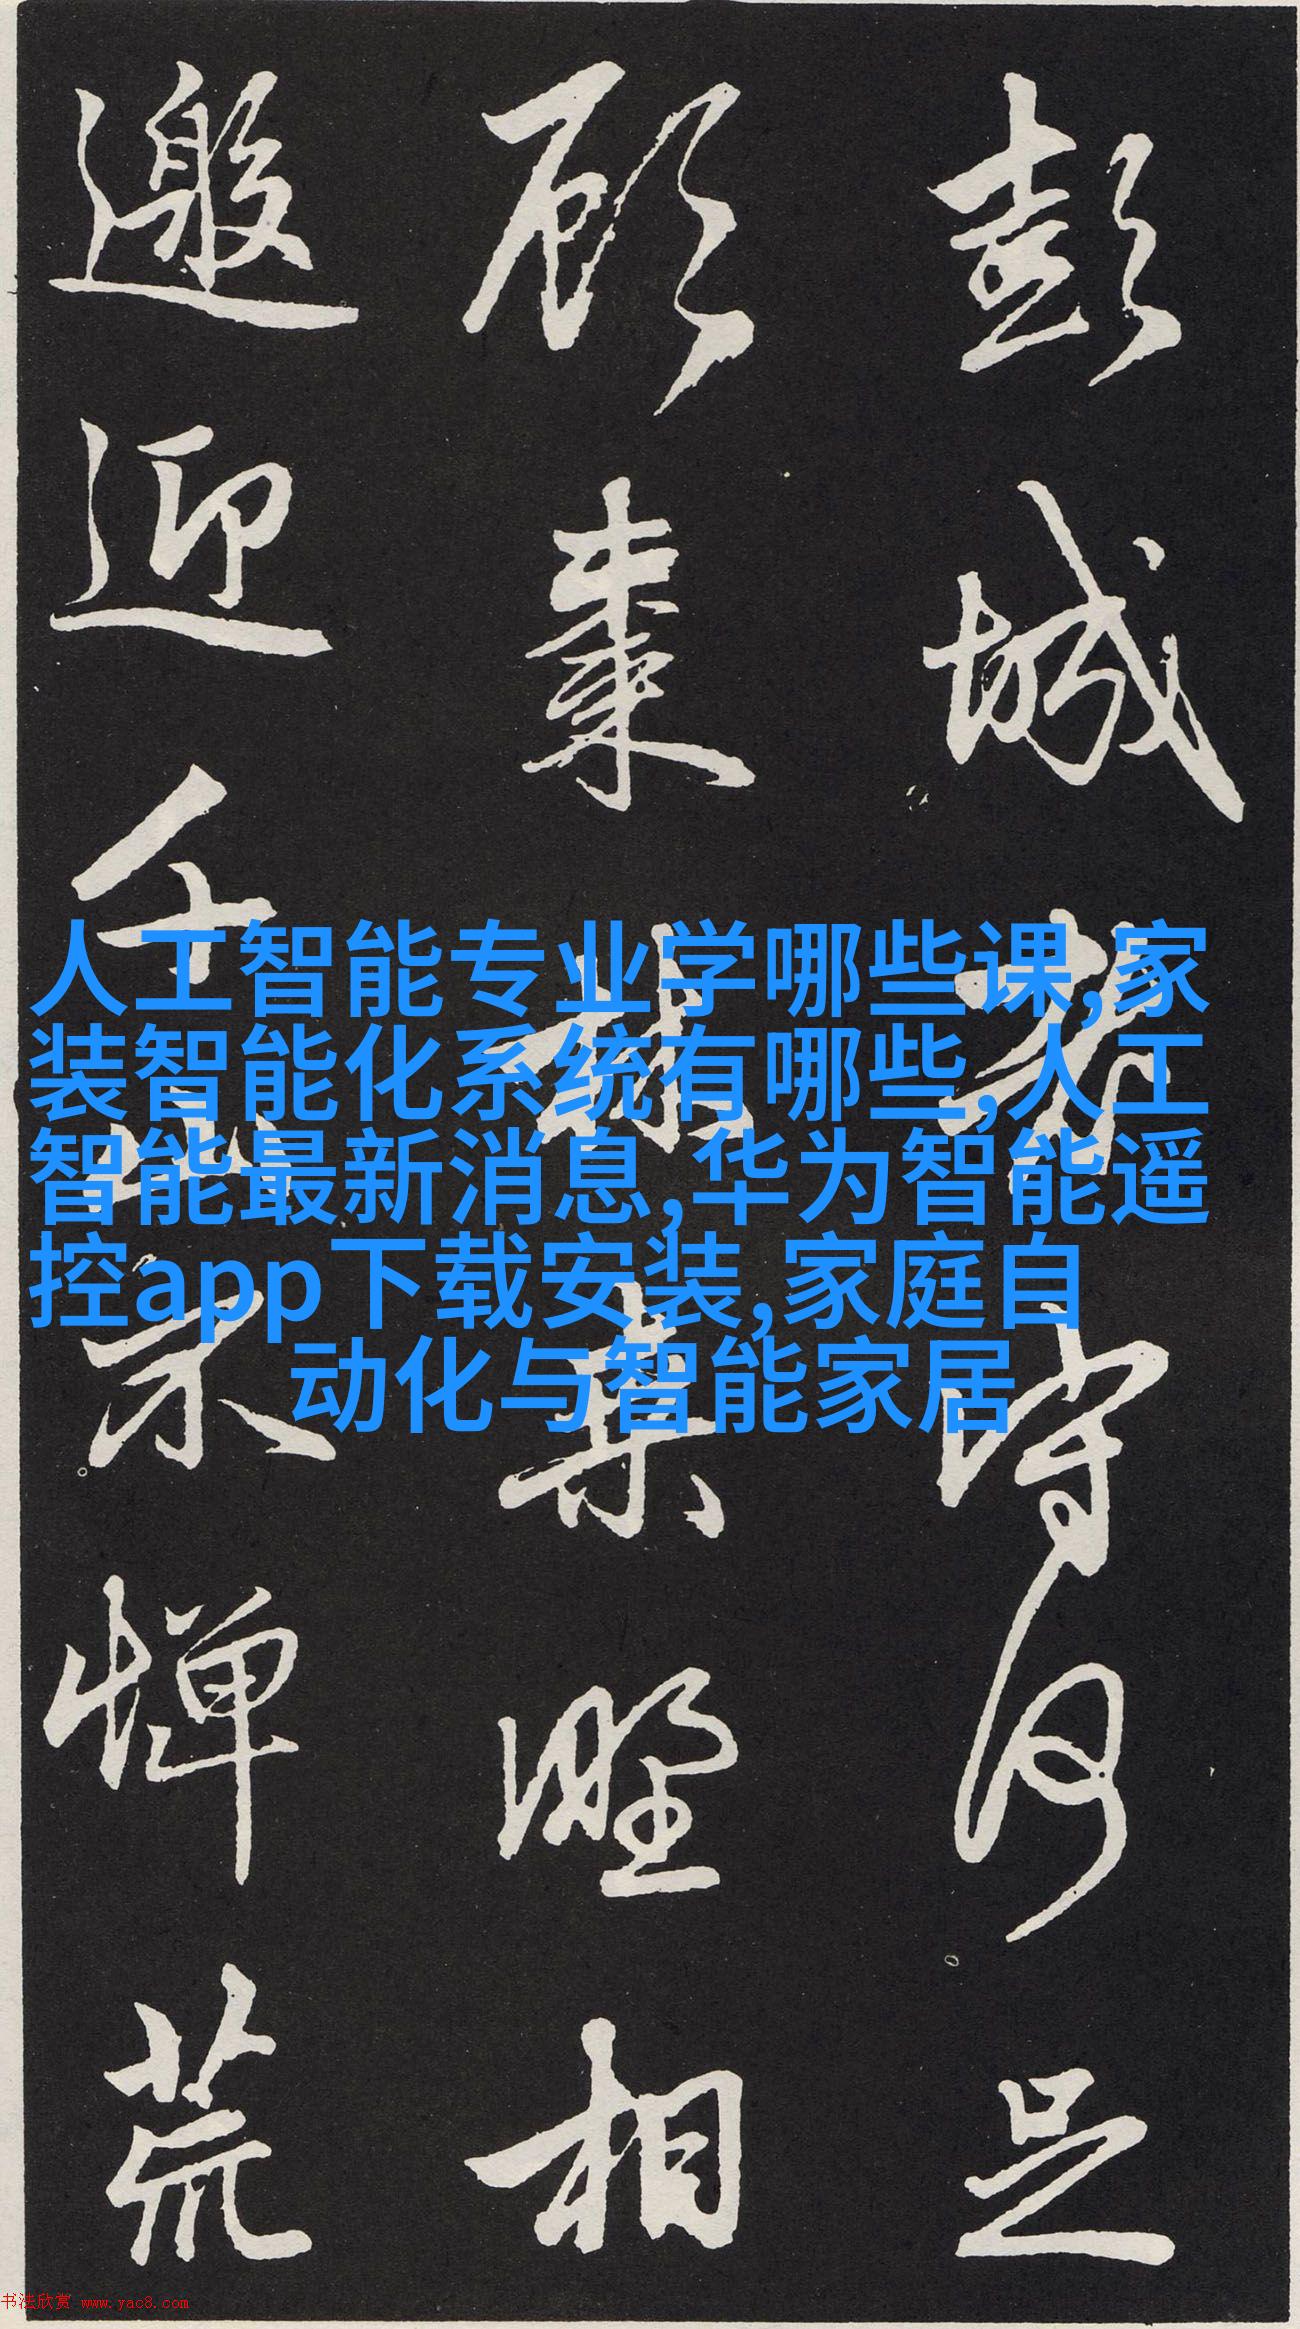 彭城老守何足
顧棗林桑野相
邀迎千山不憚荒
人工智能专业学哪些课,家
装智能化系统有哪些,人工
智能最新消息,华为智能遥
控app下载安装,家庭自
动化与智能家居
书法欣赏 www.yac8.com